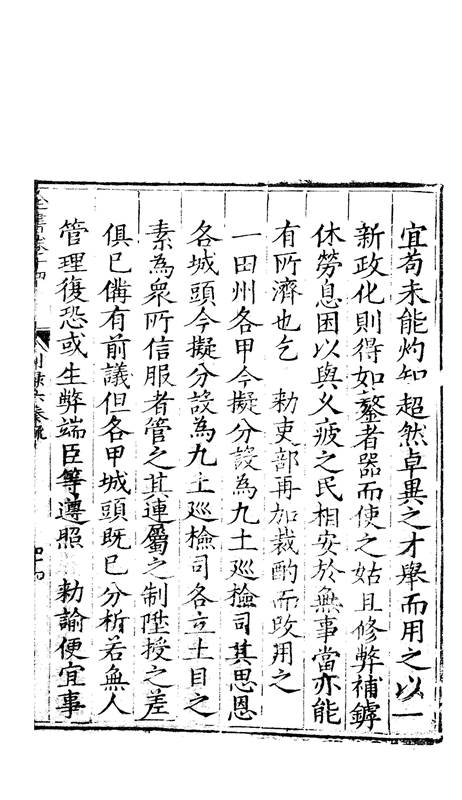 宜苟未能灼知超然卓異之才舉而用之以一
新政化則得如鏊者器而使之姑且修弊補罅
休勞息困以與乂疲之民相安於無事當亦能
有所濟也乞 勑吏部再加裁酌而改用之
一田州各甲今擬分設為九土巡檢司其思恩
各城頭今擬分設為九土巡檢司各立土目之
素為衆所信服者管之其連屬之制陞授之差
俱已備有前議但各甲城頭既已分析若無人
管理復恐或生弊端臣等遵照 勑諭便宜事
全書卷十四
四十四